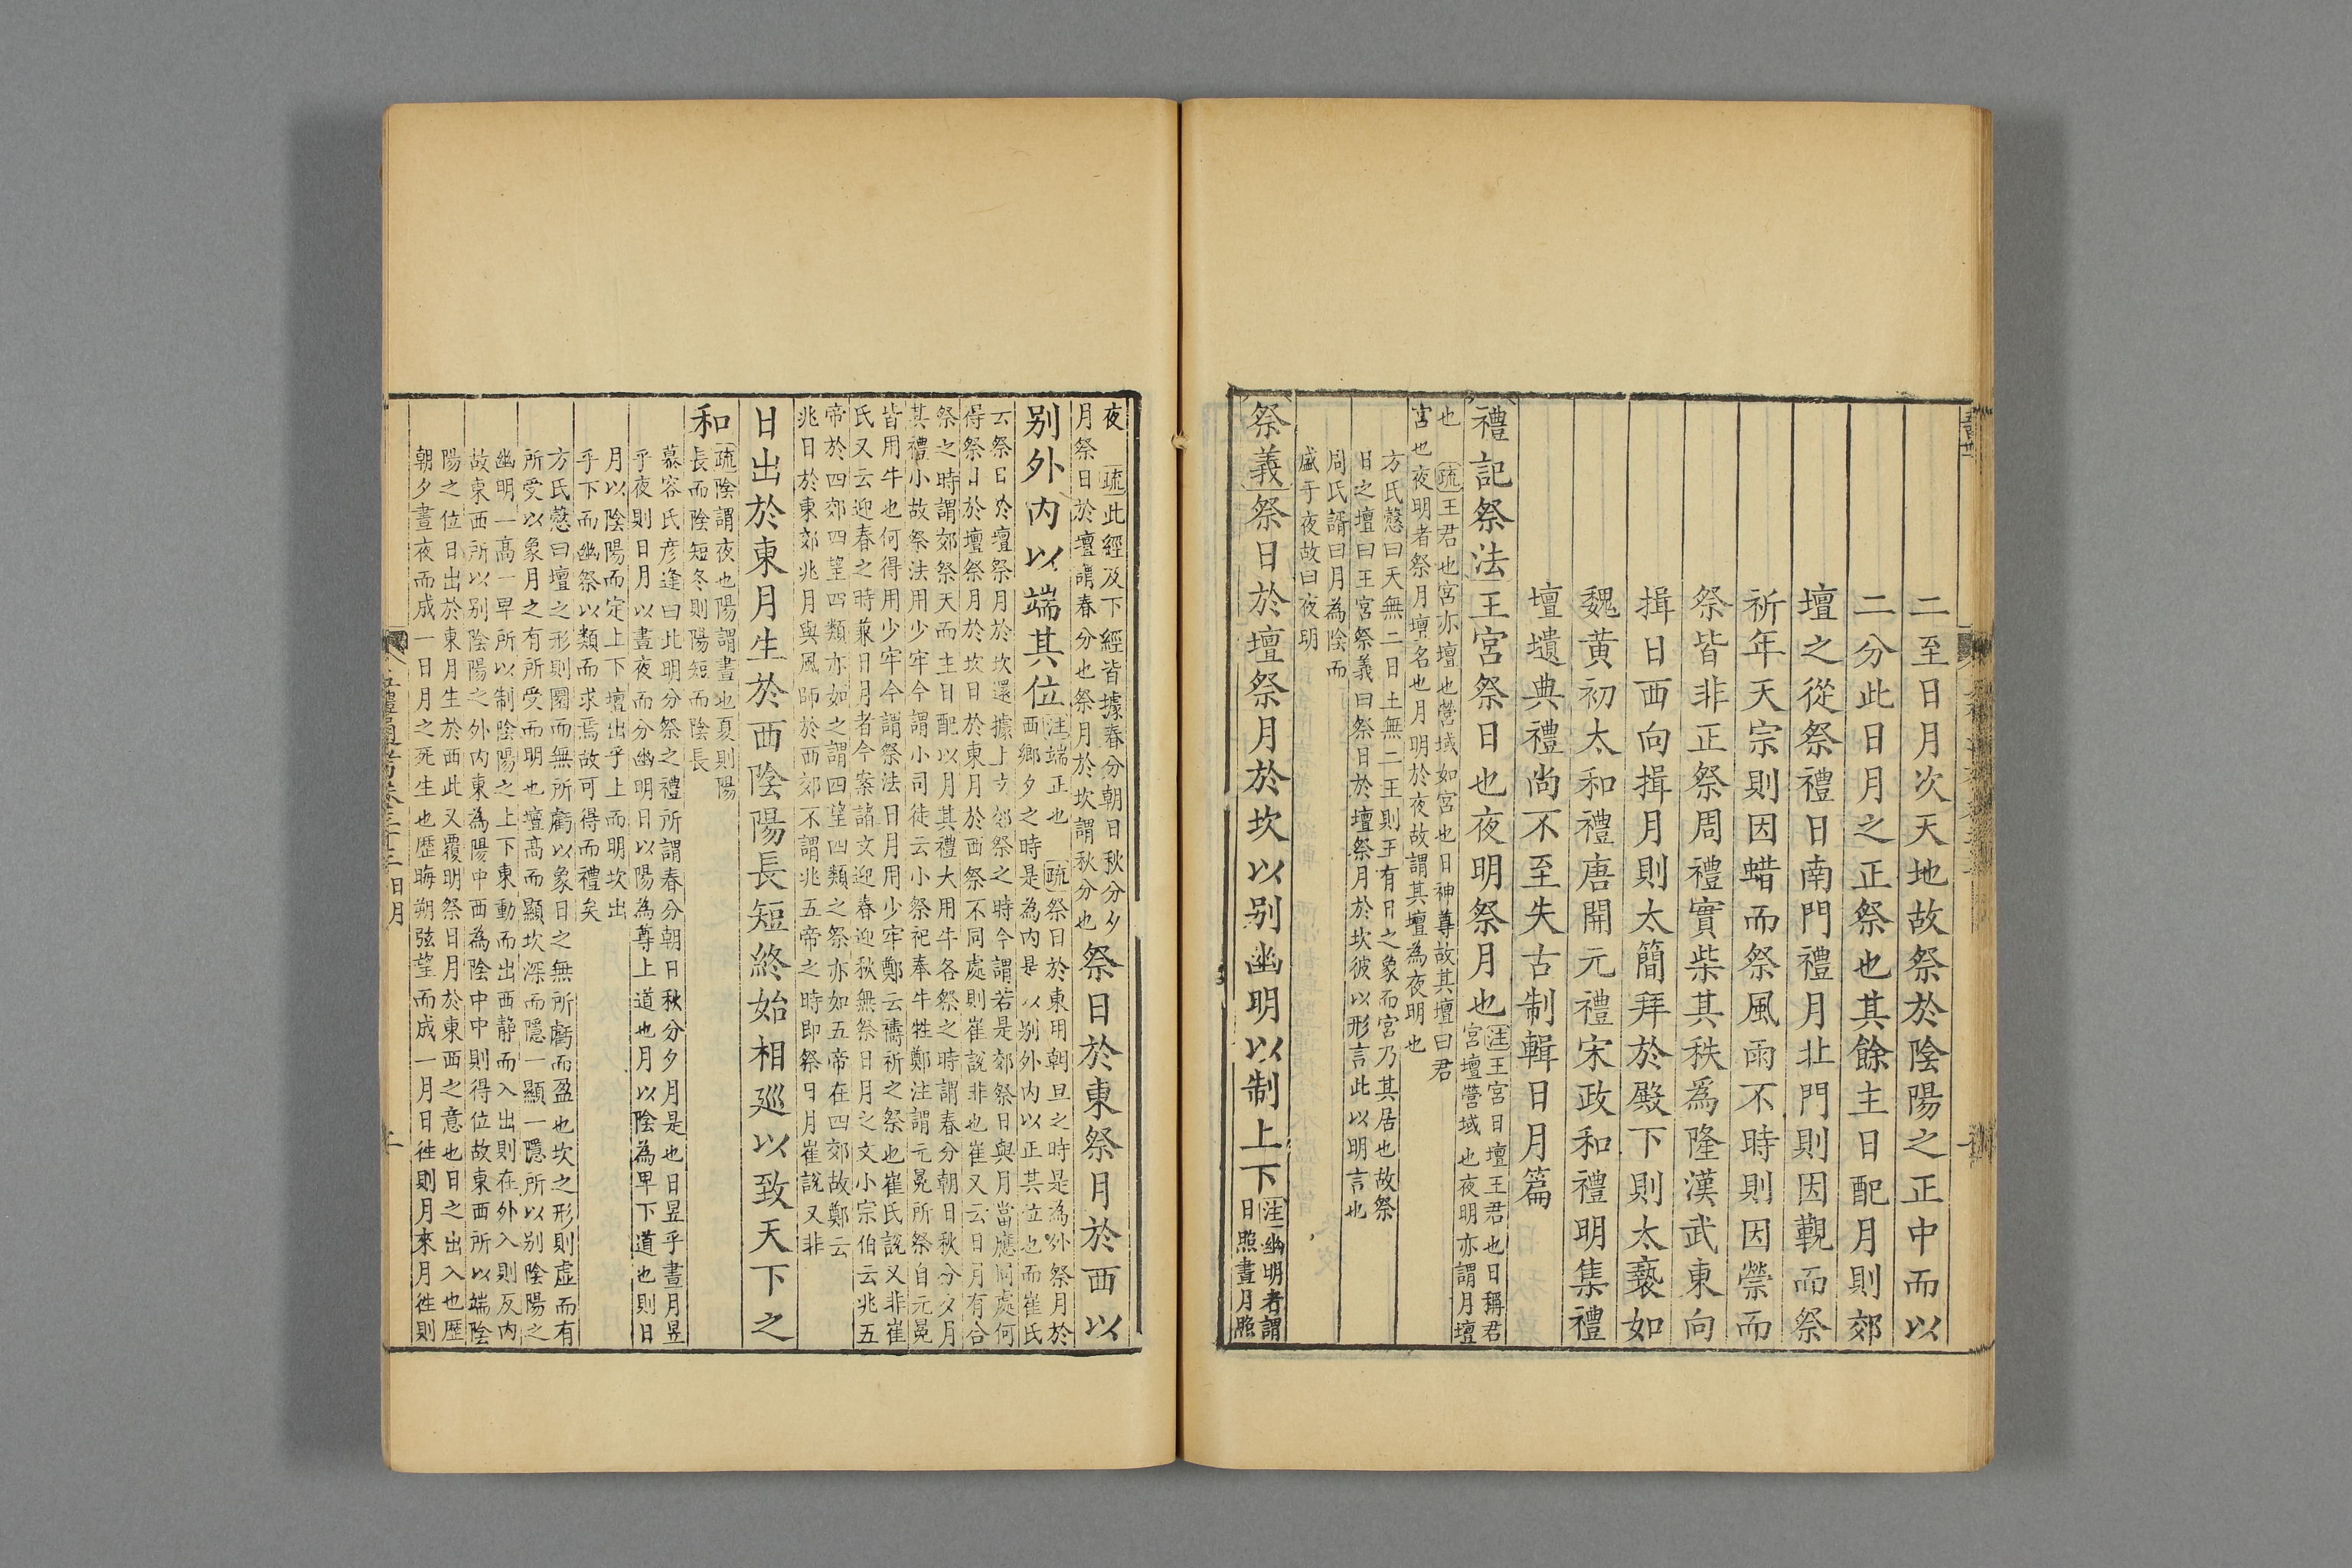 二至日月次天地故祭於陰陽之正中而以
二分此日月之正祭也其餘主日配月則郊
壇之從祭禮日南門禮月北門則因觀而祭
祈年天宗則因蜡而祭風雨不時則因禜而
祭皆非正祭周禮實柴其秩爲隆漢武東向
揖日西向揖月則太簡拜於殿下則太褻如
魏黄初太和禮唐開元禮宋政和禮明集禮
壇壝典禮尚不至失古制輯日月篇
禮記祭法王宮祭日也夜明祭月也
注王宮日壇王君也日稱君
宮壇營域也夜明亦謂月壇
也疏王君也宮亦壇也營域如宮也日神尊故其壇曰君
宮也夜明者祭月壇名也月明於夜故謂其壇為夜明也
方氏慤曰天無二日土無二王則王有日之象而宮乃其居也故祭
日之壇曰王宮祭義曰祭日於壇祭月於坎彼以形言此以明言也
周氏諝曰月為陰而
盛于夜故曰夜明
祭義祭日於壇祭月於坎以别幽明以制上下
注幽明者謂
日照晝月照
夜疏此經及下經皆據春分朝日秋分夕
月祭日於壇謂春分也祭月於坎謂秋分也
祭日於東祭月於西以
别外内以端其位
注端正也疏祭日於東用朝旦之時是為外祭月於
西鄉夕之時是為内是以别外内以正其位也而崔氏
云祭日於壇祭月於坎還據上文郊祭之時今謂若是郊祭日與月當應同處何
得祭日於壇祭月於坎日於東月於西祭不同處則崔說非也崔又云日月有合
祭之時謂郊祭天而主日配以月其禮大用牛各祭之時謂春分朝日秋分夕月
其禮小故祭法用少牢今謂小司徒云小祭祀奉牛牲鄭注謂元冕所祭自元冕
皆用牛也何得用少牢今謂祭法日月用少牢鄭云禱祈之祭也崔氏說又非崔
氏又云迎春之時兼日月者今案諸文迎春迎秋無祭日月之文小宗伯云兆五
帝於四郊四望四類亦如之謂四望四類之祭亦如五帝在四郊故鄭云
兆日於東郊兆月與風師於西郊不謂兆五帝之時即祭日月崔說又非
日出於東月生於西陰陽長短終始相巡以致天下之
和
疏陰謂夜也陽謂晝也夏則陽
長而陰短冬則陽短而陰長
慕容氏彦逢曰此明分祭之禮所謂春分朝日秋分夕月是也日昱乎晝月昱
乎夜則日月以晝夜而分幽明日以陽為尊上道也月以陰為卑下道也則日
月以陰陽而定上下壇出乎上而明坎出
乎下而幽祭以類而求焉故可得而禮矣
方氏慤曰壇之形則圜而無所虧以象日之無所虧而盈也坎之形則虛而有
所受以象月之有所受而明也壇高而顯坎深而隱一顯一隱所以别陰陽之
幽明一高一卑所以制陰陽之上下東動而出西靜而入出則在外入則反内
故東西所以别陰陽之外内東為陽中西為陰中中則得位故東西所以端陰
陽之位日出於東月生於西此又覆明祭日月於東西之意也日之出入也歴
朝夕晝夜而成一日月之死生也歴晦朔弦望而成一月日徃則月來月徃則
日月